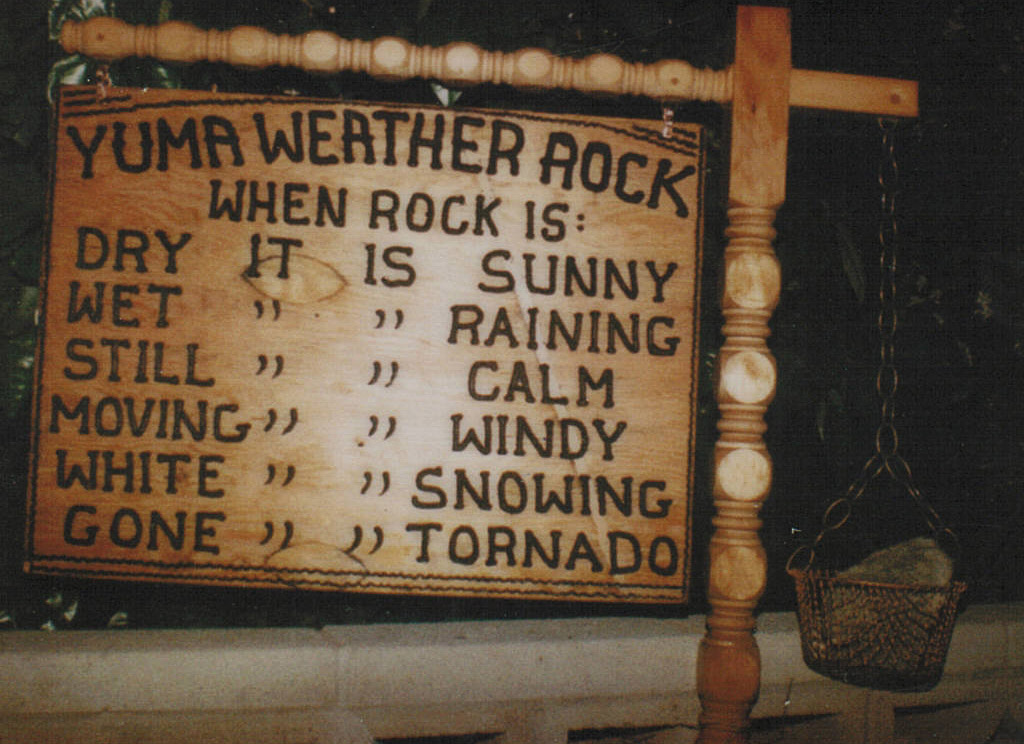 YUMA WEATHER ROCK
WHEN ROCK IS:
DRY IT IS SUNNY
WET " " RAINING
STILL " " CALM
MOVING " " WINDY
WHITE " " SNOWING
GONE " " TORNADO